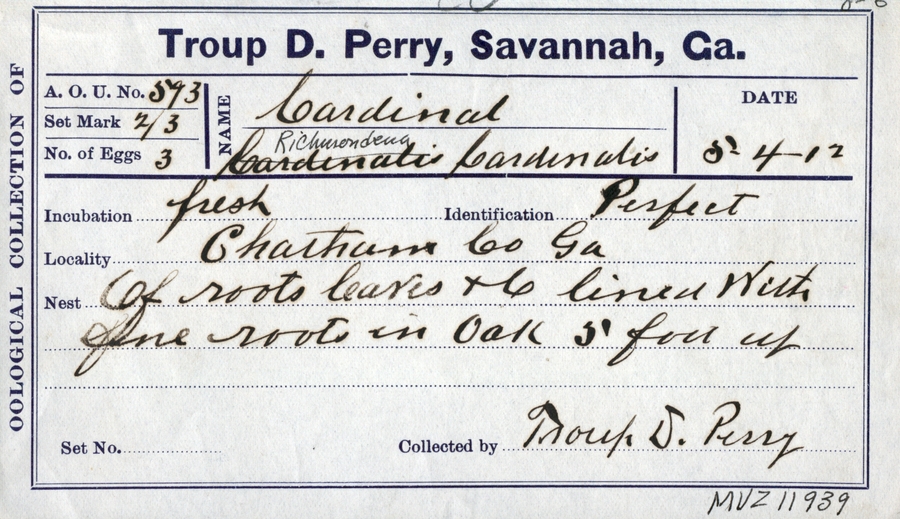 OOLOGICAL COLLECTION OF
Troup D. Perry, Savannah, Ga.
A. O. U. No. 593
Set Mark 2/3
No. of Eggs 3
NAME
Cardinal
Richmondena
Cardinalis Cardinalis
DATE
5-4-12
Incubation fresh Identification Perfect
Locality Chatham Co Ga
Nest Of roots leaves & C lined With
fine roots in Oak 5' foot up
Set No. Collected by Troup D. Perry
MVZ 11939